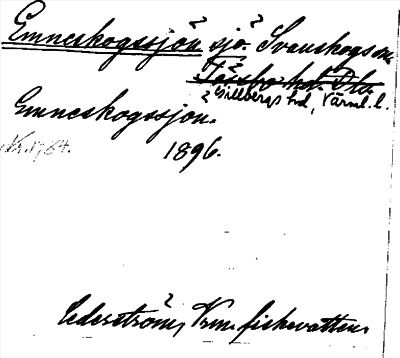 Emneskogssjön sjö. Svanskogs sn
Tössbo hd. Dls.
Gillbergs hd, Värml. l.
Emneskogssjon.
1896.
Cederström, Vrm. fiskevatten